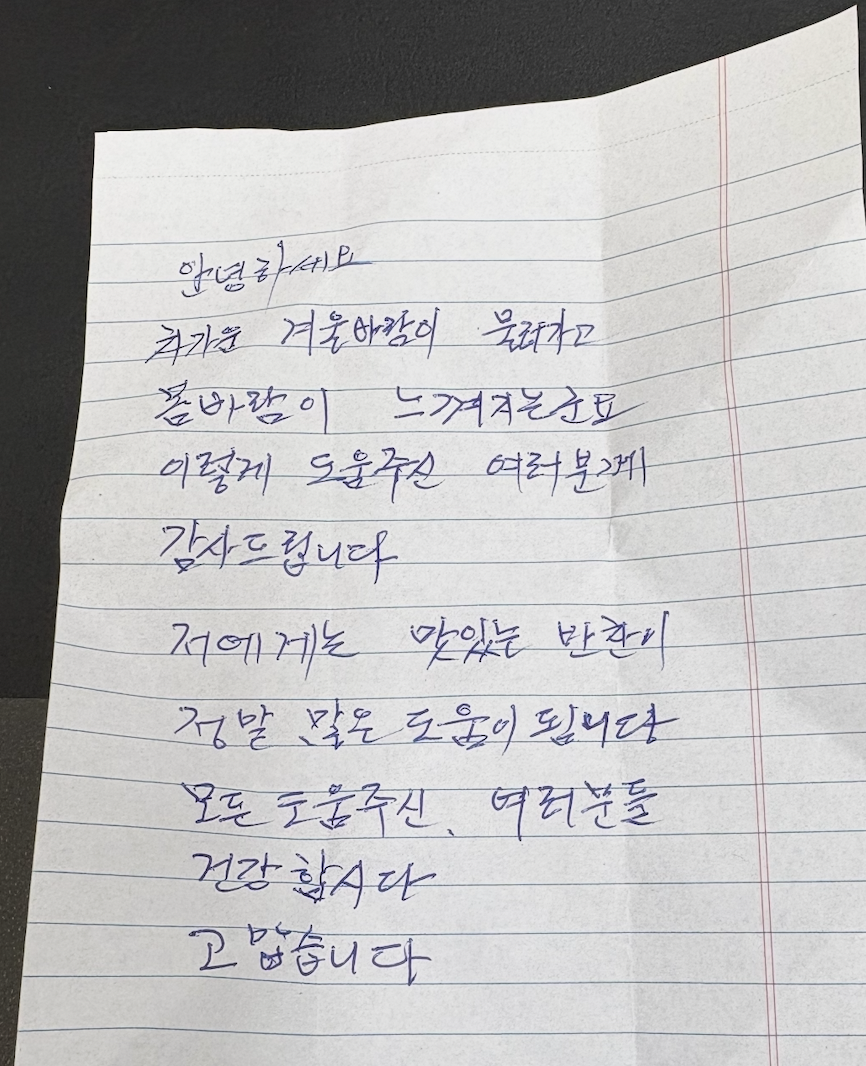 안녕하세요
차가운 겨울바람이 물러가고
봄바람이 느껴지는군요
이렇게 도움주신 여러분께
감사드립니다
저에게는 맛있는 반찬이
정말 많은 도움이 됩니다
모든 도움주신, 여러분들
건강합시다
고맙습니다